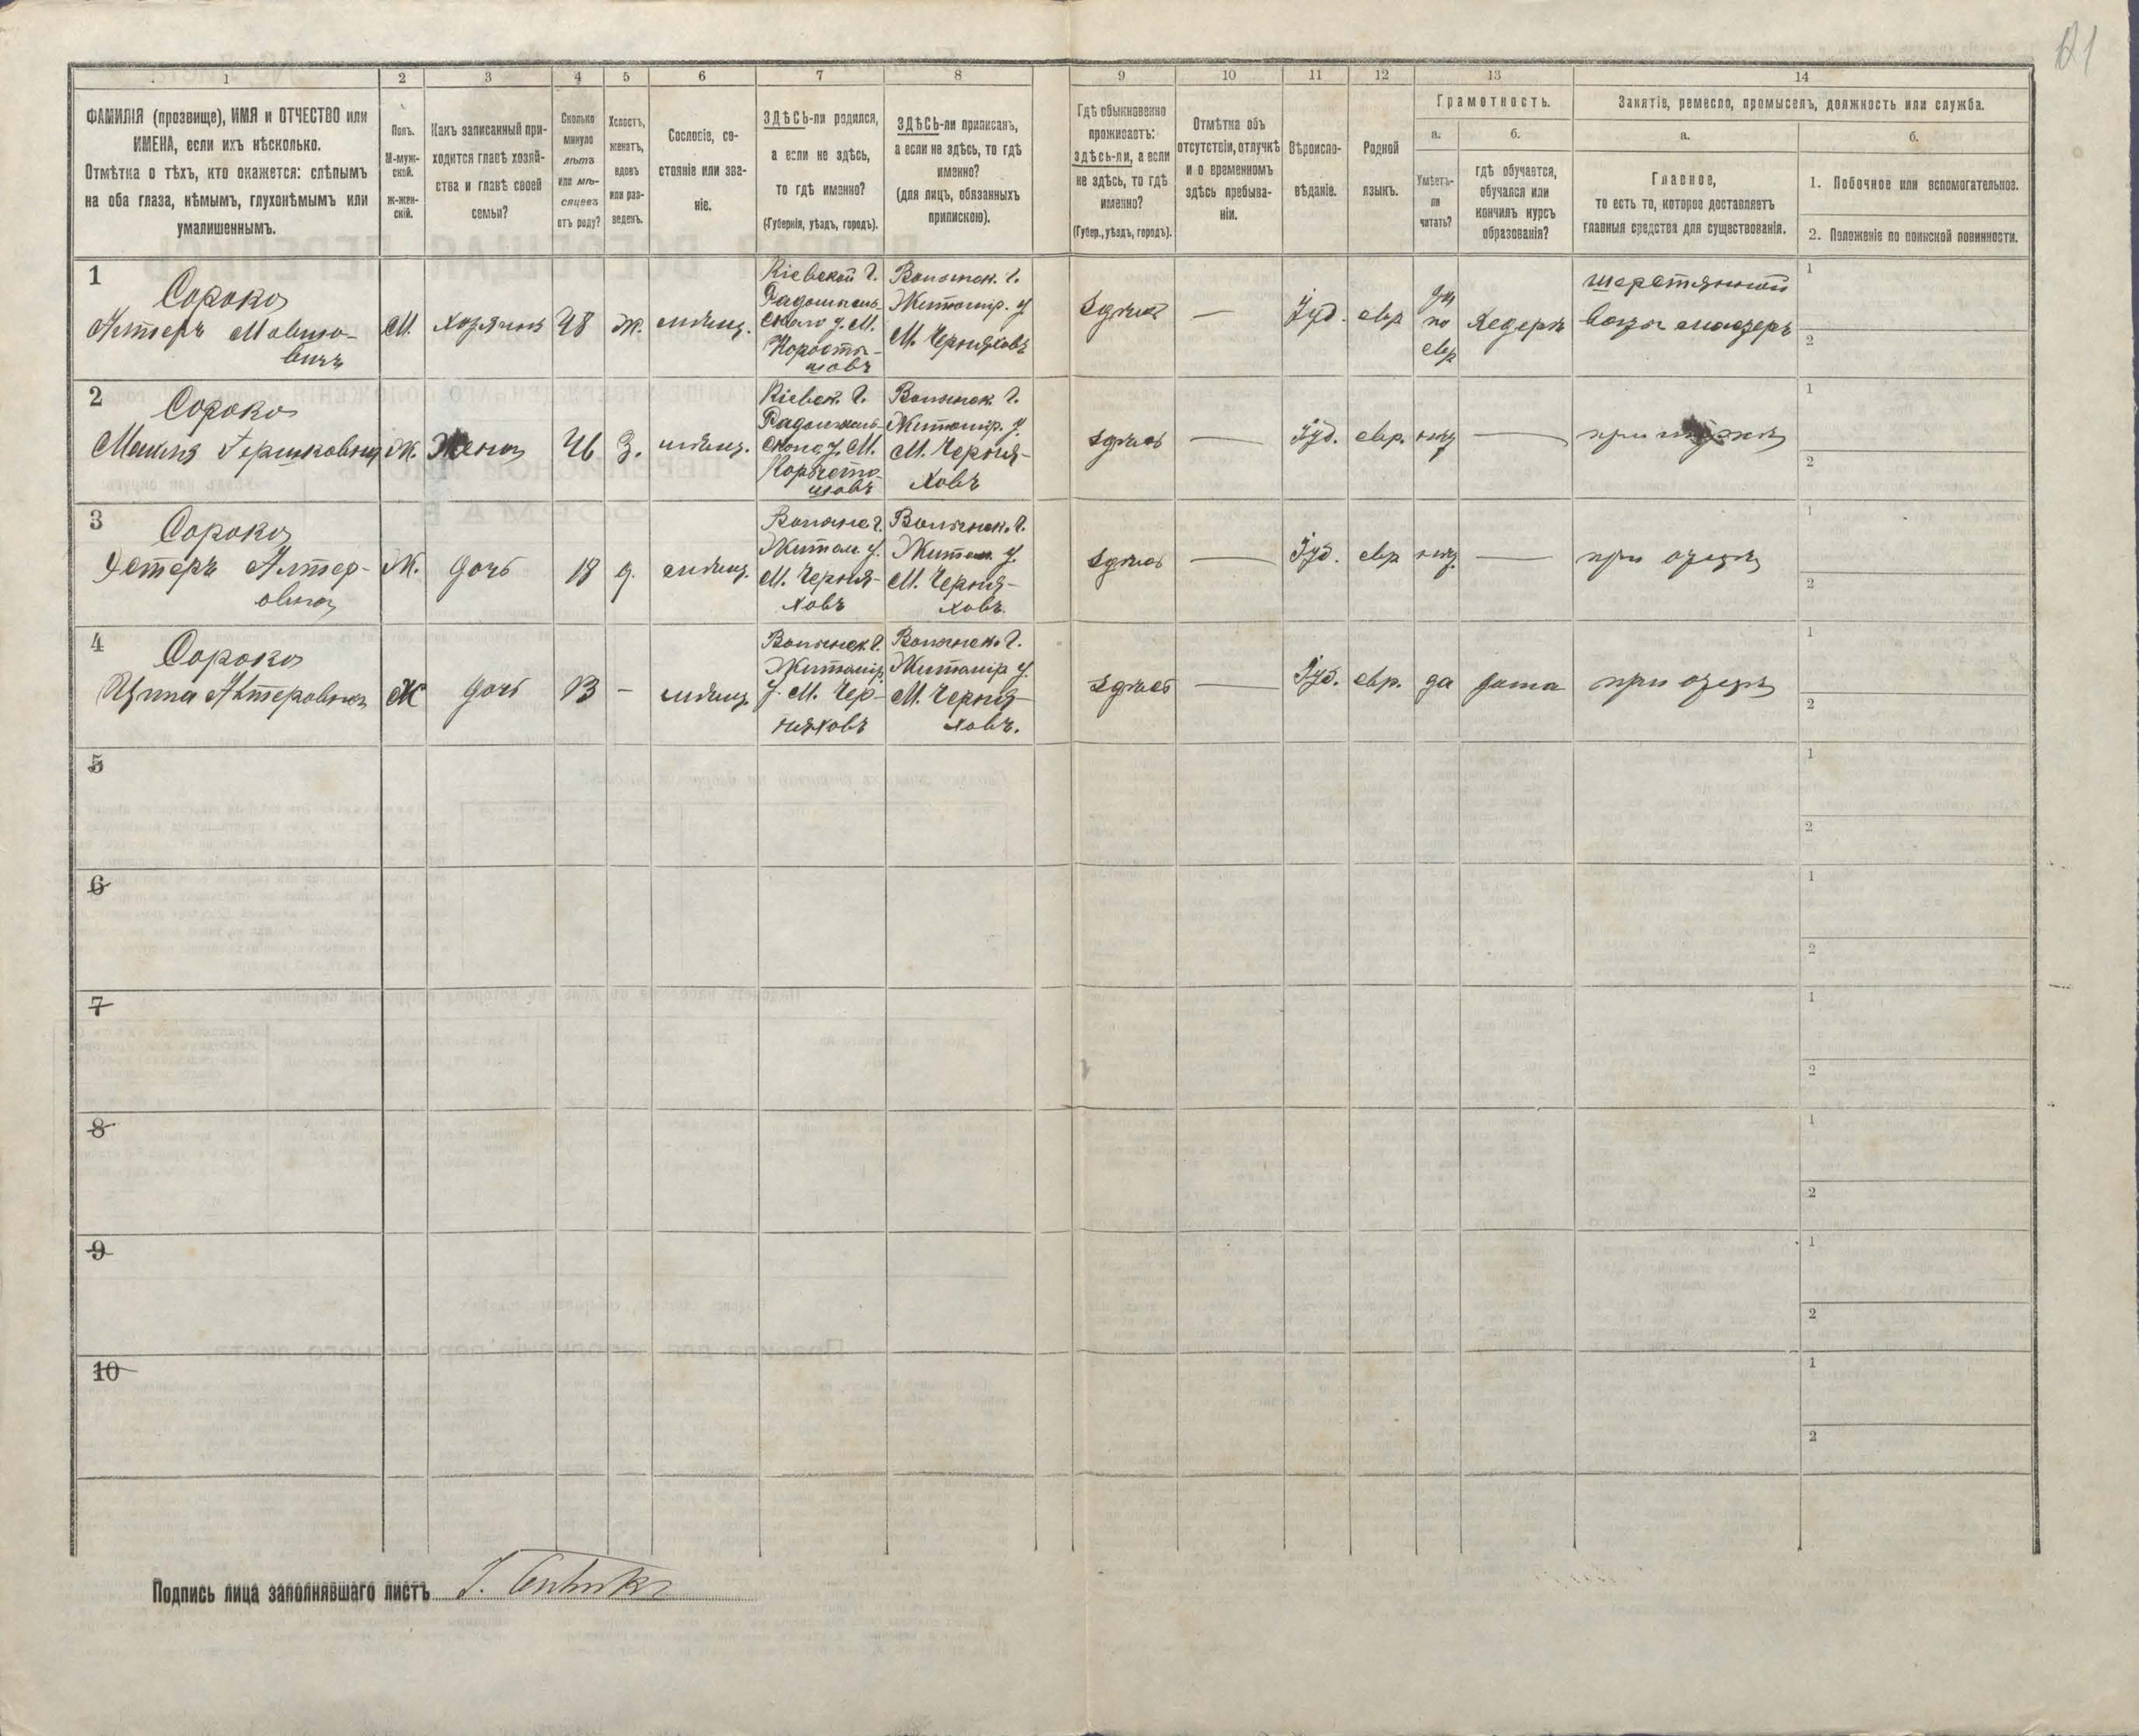 121
1
2
3
4
5
6
7
8
9
10
11
12
13
14
ФАМИЛІЯ (прозвище), ИМЯ и ОТЧЕСТВО или
ИМЕНА, если ихъ нѣсколько.
Отмѣтка о тѣхъ, кто окажется: слѣпымъ
на оба глаза, нѣмымъ, глухонѣмымъ или
умалишеннымъ.
Полъ.
М-муж-
ской.
Ж-жен-
скій.
Какъ записанный при-
ходится главѣ хозяй-
ства и главѣ своей
семьи?
Сколько
минуло
лѣтъ
или мѣ-
сяцевъ
отъ роду?
Холостъ,
женатъ,
вдовъ
или раз-
веденъ.
Сословіе, со-
стояніе или зва-
ніе.
ЗДѢСЬ-ли родился,
а если не здѣсь,
то гдѣ именно?
(Губернія, уѣздъ, городъ).
ЗДѢСЬ-ли приписанъ,
а если не здѣсь, то гдѣ
именно?
(для лицъ, обязанныхъ
припискою).
Гдѣ обыкновенно
проживаетъ:
здѣсь-ли, а если
не здѣсь, то гдѣ
именно?
(Губер., уѣздъ, городъ).
Отмѣтка объ
отсутствіи, отлучкѣ
и о временномъ
здѣсь пребыва-
ніи.
Вѣроиспо-
вѣданіе.
Родной
языкъ.
Грамотность.
а.
б.
Умѣетъ-
ли
читать?
гдѣ обучается,
обучался или
кончилъ курсъ
образованія?
Занятіе, ремесло, промыселъ, должность или служба.
а.
б.
Главное,
то есть то, которое доставляетъ
главныя средства для существованія.
1. Побочное или вспомогательное.
2. Положеніе по воинской повинности.
1
Сороко
Алтеръ Мовшо-
вичъ
М.
хозяинъ
48
ж.
мѣщ.
Кіевской г.
Радомысль
скаго у. М.
Коросты-
шовъ
Волынск. г.
Житомир. у
М. Черняховъ
Здѣсь
—
Іуд.
евр
да
по
евр
Хедеръ
1
2
2
Сороко
Гершковна
Ж.
Жена
46
З.
мѣщ.
Кіевск. г.
Радомысль
скаго у. М.
Коросты-
шовъ
Волынск. г.
Житомир. у.
М. Черня-
ховъ
здѣсь
—
Іуд.
евр.
нѣт
—
при мужѣ
1
2
3
Сороко
Эстеръ Алтер-
овна
Ж.
дочь
18
д.
мѣщ.
Волынс г.
Житом у.
М. Черня-
ховъ
Волынск. г.
Житом у.
М. Черня-
ховъ.
Здѣсь
—
Іуд.
евр
нѣт.
—
при отцѣ
1
2
4
Сороко
Ципа Алтеровна
Ж
дочь
13
–
мѣщ.
Волынск. г.
Житомір.
у. М. Чер-
няховъ
Волынск. г.
Житомір у.
М. Черня-
ховъ.
Здѣсь
—
Іуд.
евр.
да
дома
при отцѣ
1
2
5
1
2
6
1
2
7
1
2
8
1
2
9
1
2
10
1
2
Подпись лица заполнявшаго листъ